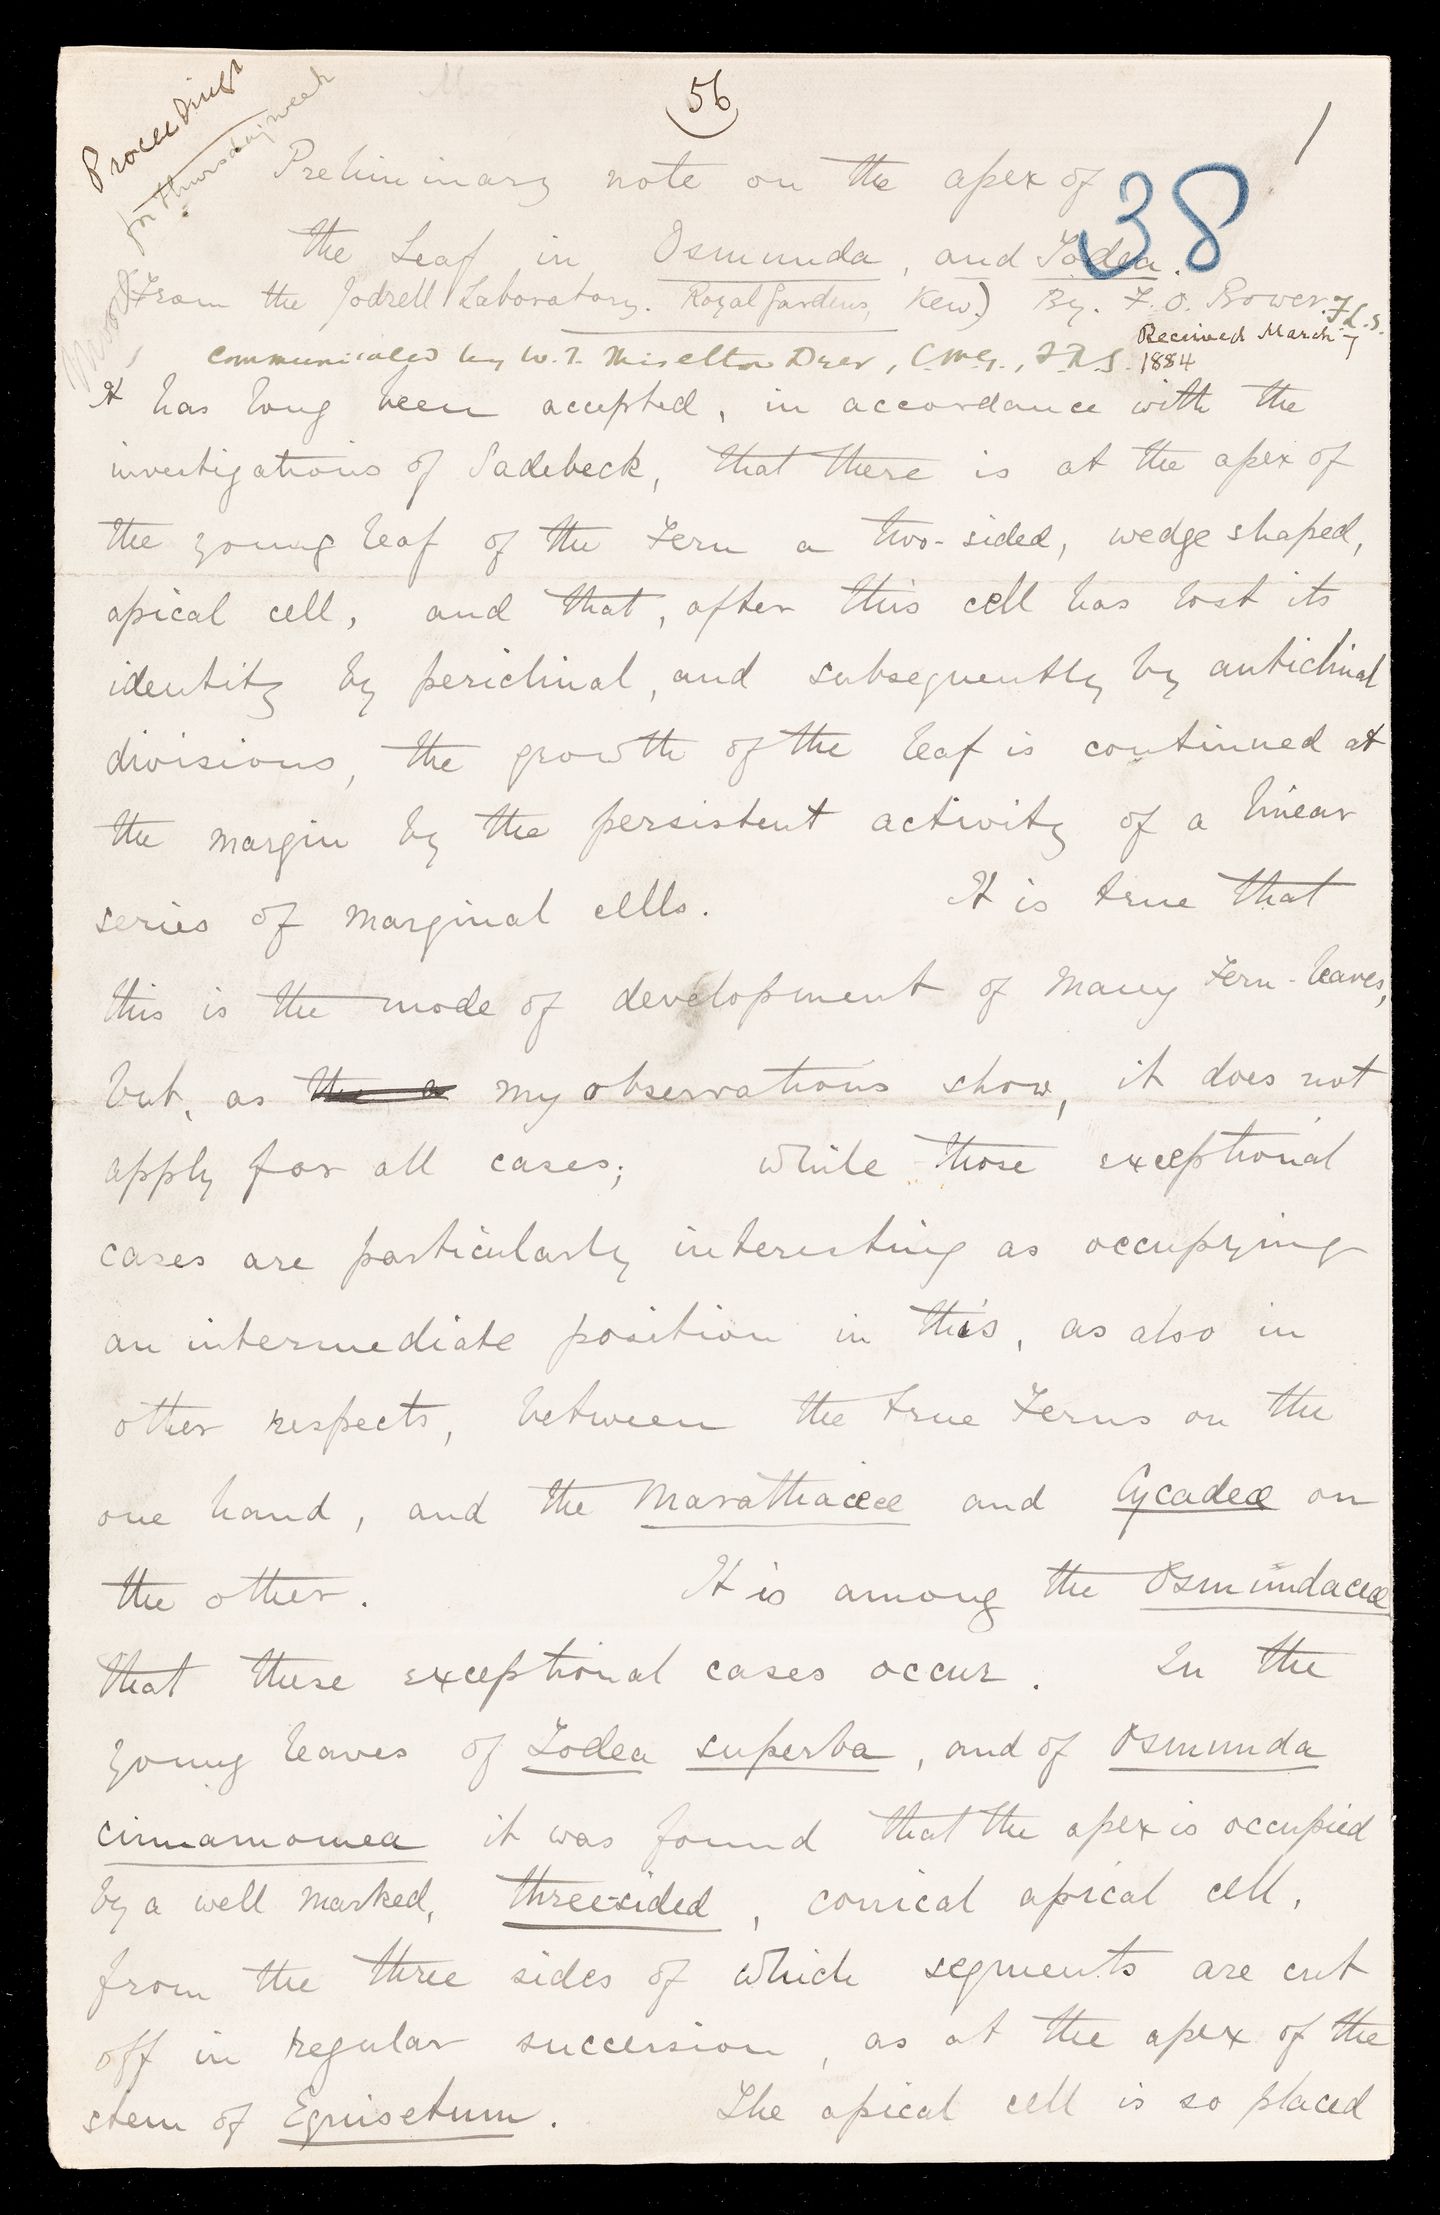 56
1
Proceedings
for Thursday week
38
Preliminary note on the apex of
the Leaf in Osmunda, and Todea.
(From the Jodrell Laboratory. Royal Gardens, Kew.) By. F. O. Bower. F.L.S.
Received March 7
1884
communicated by W. T. Thiselton Dyer, C.M.G., F.R.S.
It has long been accepted, in accordance with the
investigations of Sadebeck, that there is at the apex of
the young leaf of the Fern a two-sided, wedge shaped,
apical cell, and that, after this cell has lost its
identity by periclinal, and subsequently by anticlinal
divisions, the growth of the leaf is continued at
the margin by the persistent activity of a linear
series of marginal cells. It is true that
this is the mode of development of many Fern-leaves,
but, as my observations show, it does not
apply for all cases; while those exceptional
cases are particularly interesting as occupying
an intermediate position in this, as also in
other respects, between the true Ferns on the
one hand, and the Marattiaceæ and Cycadeæ on
the other. It is among the Osmundaceæ
that these exceptional cases occur. In the
young leaves of Todea superba, and of Osmunda
cinnamomea it was found that the apex is occupied
by a well marked, three-sided, conical apical cell,
from the three sides of which segments are cut
off in regular succession, as at the apex of the
stem of Equisetum. The apical cell is so placed